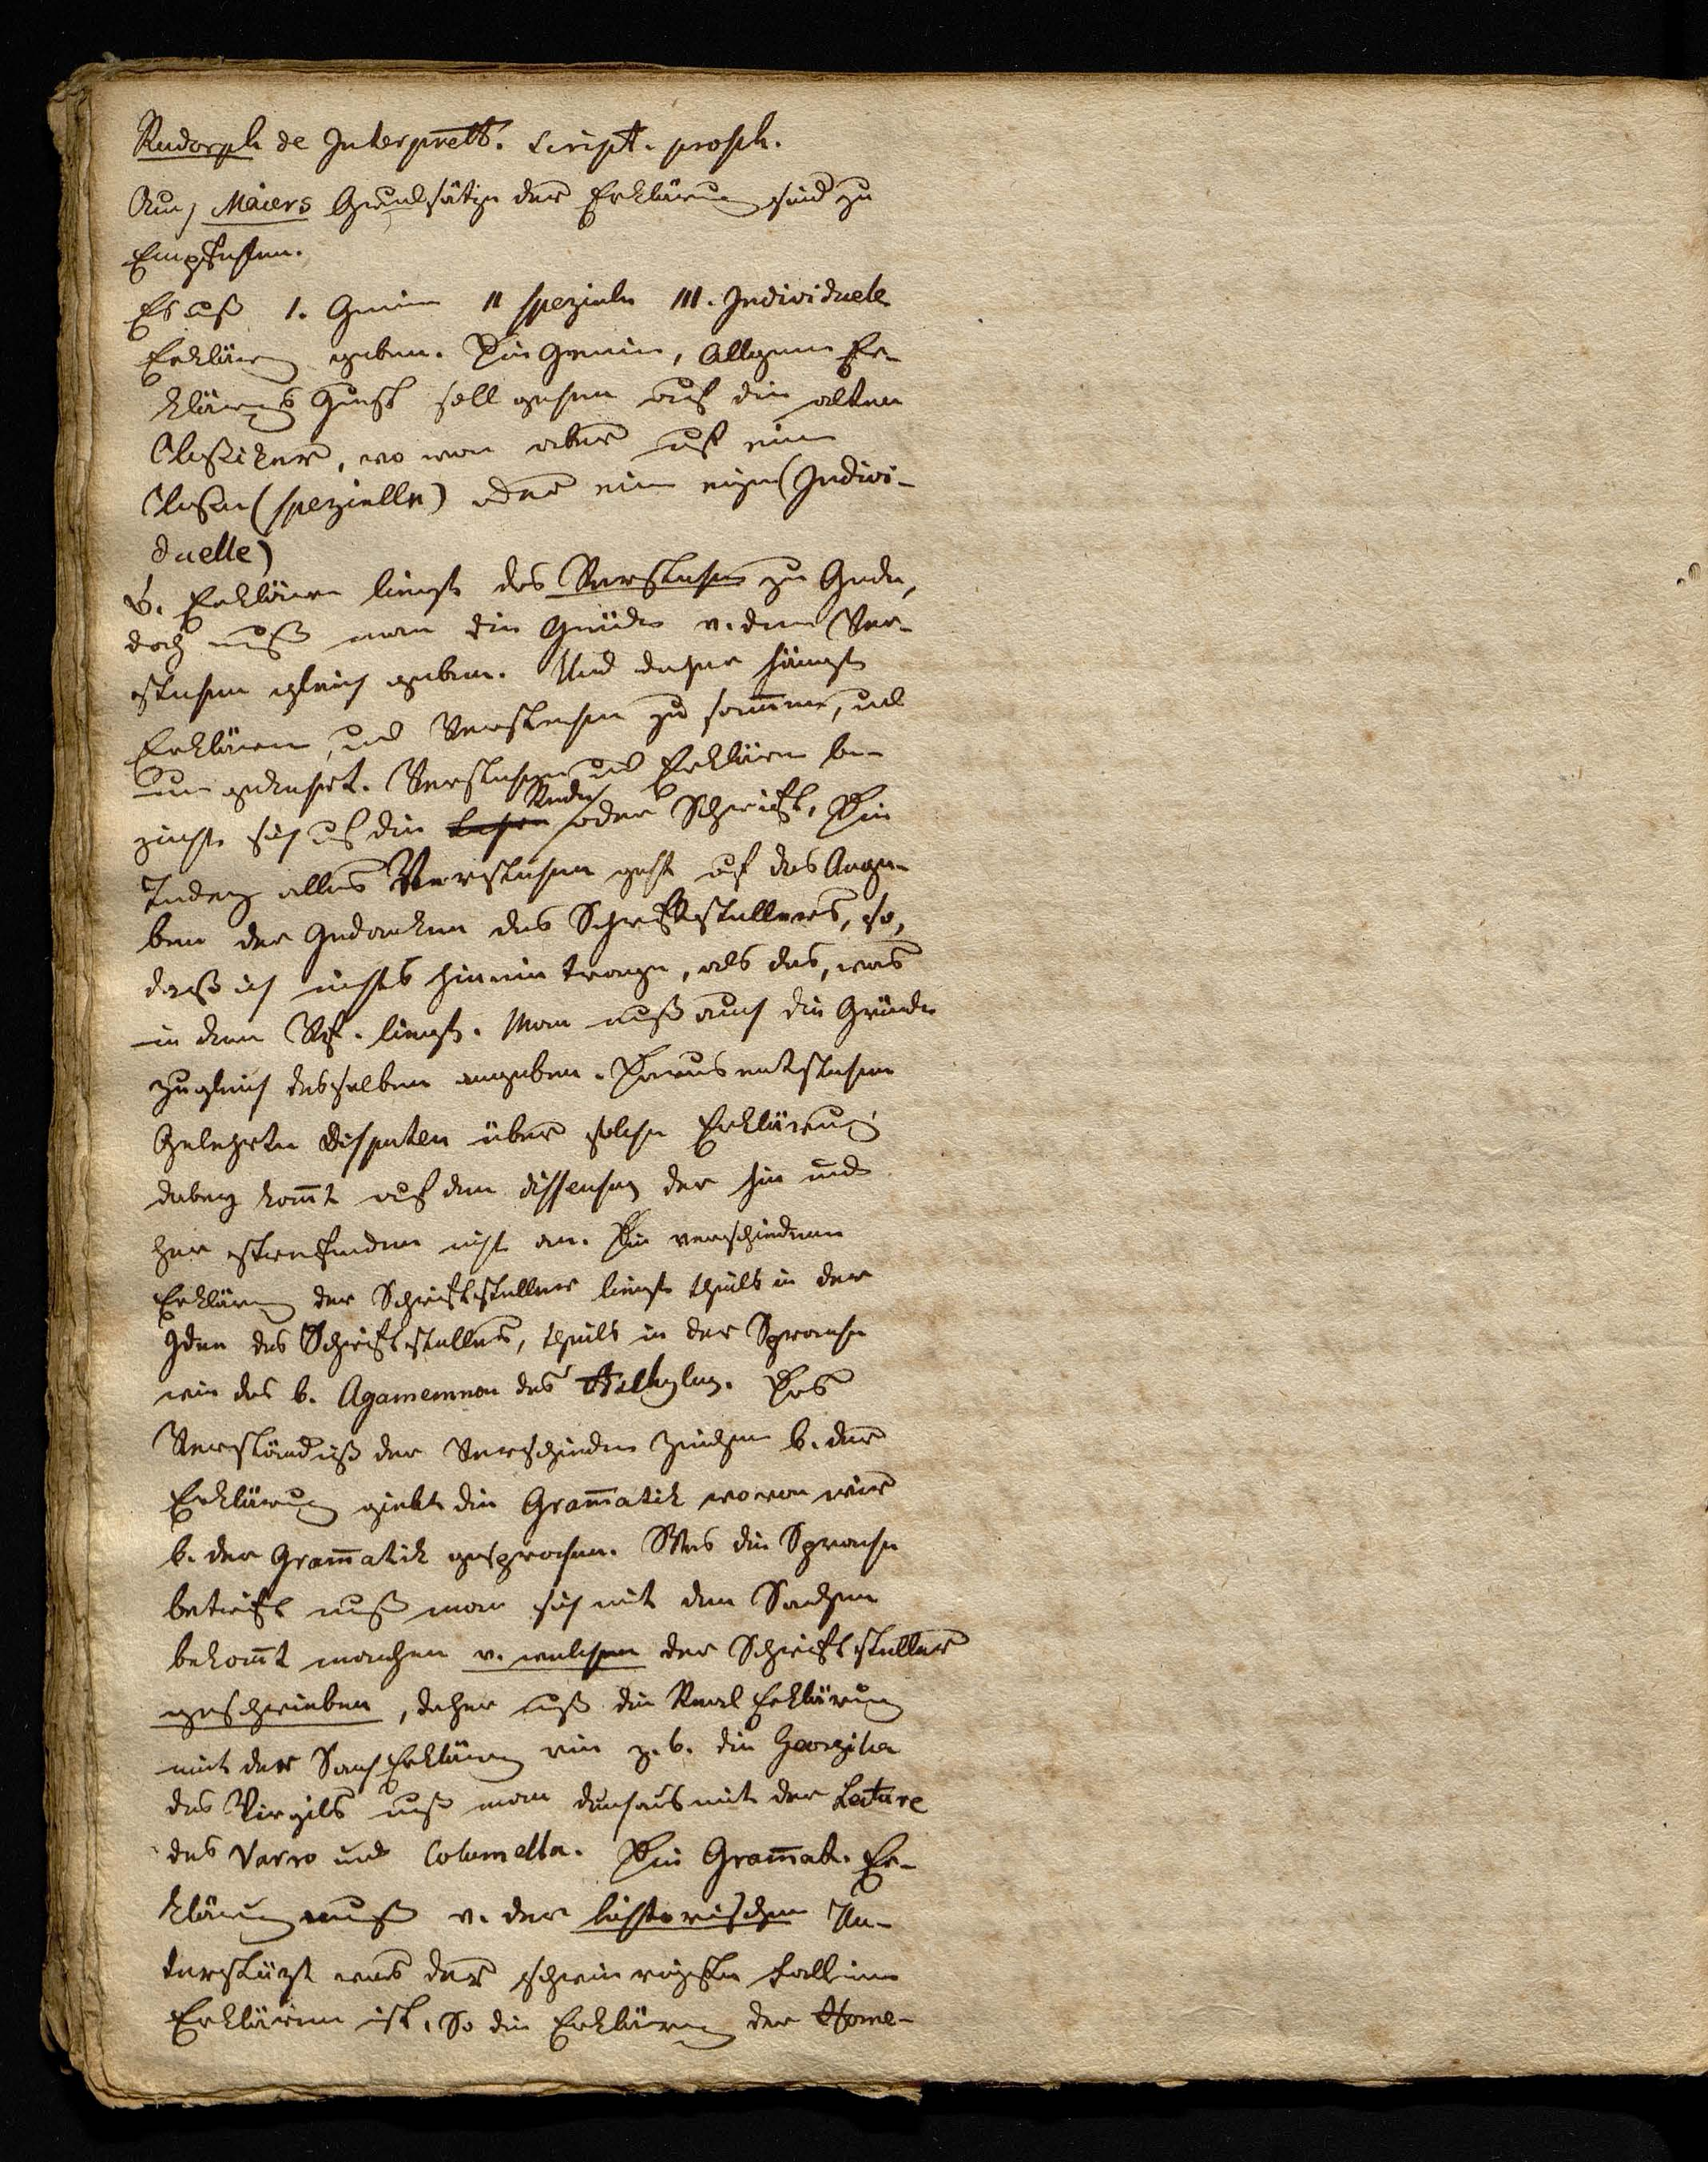 Rudorph de Interprett. Script. proph.
Auch Maiers Grundsätze der Erklärung sind zu
Empfehlen.
Es muß I. Gemein II spezielle III. Individuele
Erklärung geben. Die Gemein, Allgemein Er-
klärungs Kunst soll gehen auf die alten
Classiker, wo man aber auf eine
Classe (spezielle) oder eine einzeln (Indivi-
duelle)
d. Erklären liegt das Verstehen zu Grunde,
doch muß man die Gründe v. dem Ver-
stehen gleich geben. Und daher hängt
Erklären, und Verstehen zusammen, und
umgekehrt. Verstehen und Erklären be-
zieht sich auf die Rede oder Schrift. Die
Tendenz alles Verstehen geht auf das Ange-
ben der Gedanken des Schriftstellers, so,
daß ich nichts hinein trage, als das, was
in dem Schr. liegt. Man muß auch die Gründe
zugleich desselben angeben. Daraus entstehen
Gelehrte Disputen über solche Erklärung
dabey kommt auf den dissensus der hin und
her streitenden nicht an. Die verschiedenen
Erklärung der Schriftsteller liegt theils in der
Idee des Schriftstellers, theils in der Sprache
wie das b. Agamemnon des Aeschylus. Das
Verständniß der Verschieden Zeichen b. der
Erklärung giebt die Grammatik wovon wir
b. der Grammatik gesprochen. Was die Sprache
betrift muß man sich mit den Sachen
bekannt machen v. welchen der Schriftsteller
geschrieben, daher muß die Real Erklärung
mit der Sach Erklärung wie z. b. die Georgika
des Virgils muß man durchaus mit der Lecture
des Varro und Columella. Die Grammat. Er-
klärung muß v. der historischen Un-
terstüzt was der schwierigste Fall im
Erklären ist. So die Erklärung der Home-